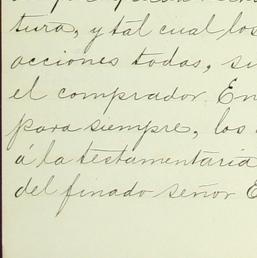 tura, y tal cual los
acciones todas, su
el comprador. En
para siempre, los
á la testamentaria
del finado señor E